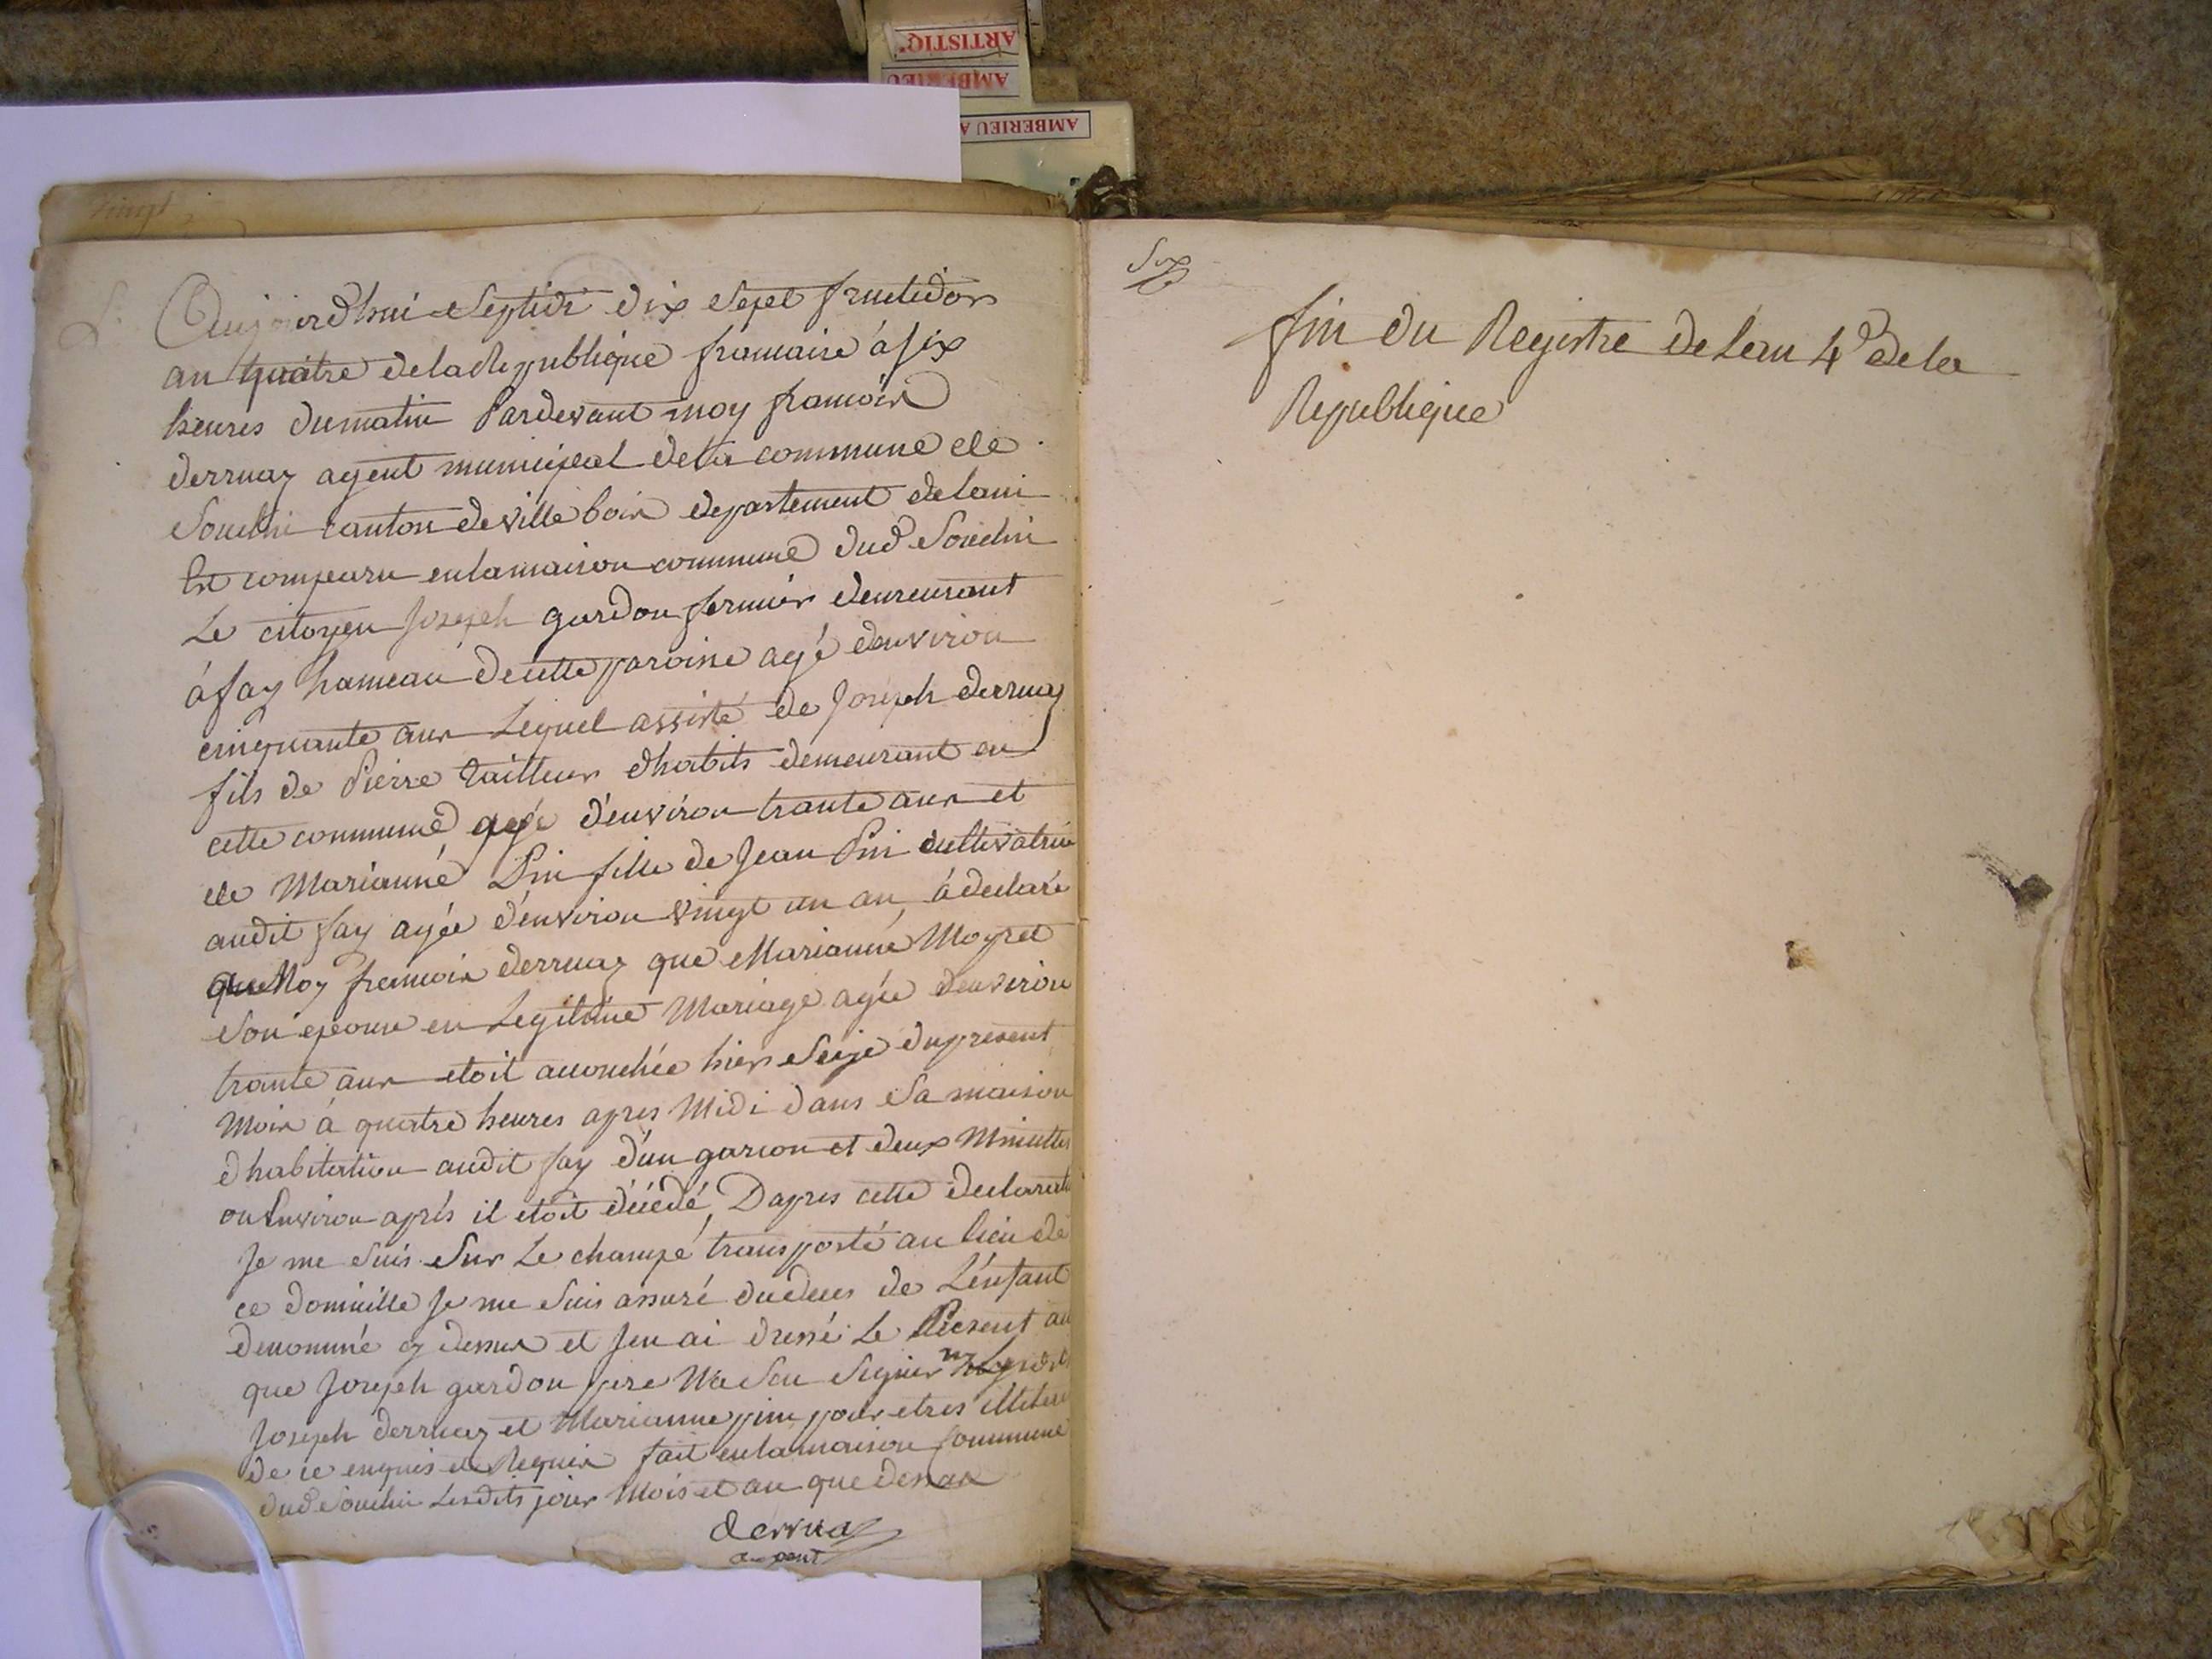 ARTISTIQ'
AMBERIEU
AMBERIEU A
vingt
Aujourdhui Septidi dix Sept fructidor
an quatre delaRepublique francaise á six
heures dumatin Pardevant moy francois
derruaz agent municipal dela commune de
Souclin canton deville bois departement delain
Est comparu enlamaison commune dud Souclin
Le citoyen Joseph gardon fermier demeurant
á fay hameau decette paroisse agé denviron
cinquante ans Lequel assisté de Joseph derruaz
fils de Pierre tailleur dhabits demeurant en
cette commune agé d'environ trante ans et
de Marianne Pin fille de Jean Pin cultivatrice
audit fay agée d'environ vingt un an, á declaré
Moy francois derruaz que Marianne Moyret
Son epouse en Legitime Mariage agée denviron
trante ans etoit accouchée hier Seize dupresent
Mois á quatre heures apres Midi dans Sa maison
dhabitation audit fay d'un garcon et deux Minuttes
ou Environ aprés il etoit décédé, Dapres cette declarat
Je me Suis Sur Le champé transporté au lieu de
ce domicille Je me Suis assuré dudeces de L'énfant
denommé cy dessus et Jen ai dressé Le Present
que Joseph gardon pere Na Seu Signer ny
Joseph derruaz et Marianne pin pour etres illiteré
de ce enquis et Requis fait enlamaison Commune
dud Souclin Lesdits jour Mois et an que dessus
derruaz
agent
Six
fin du Registre de Lan 4e dela
Republique